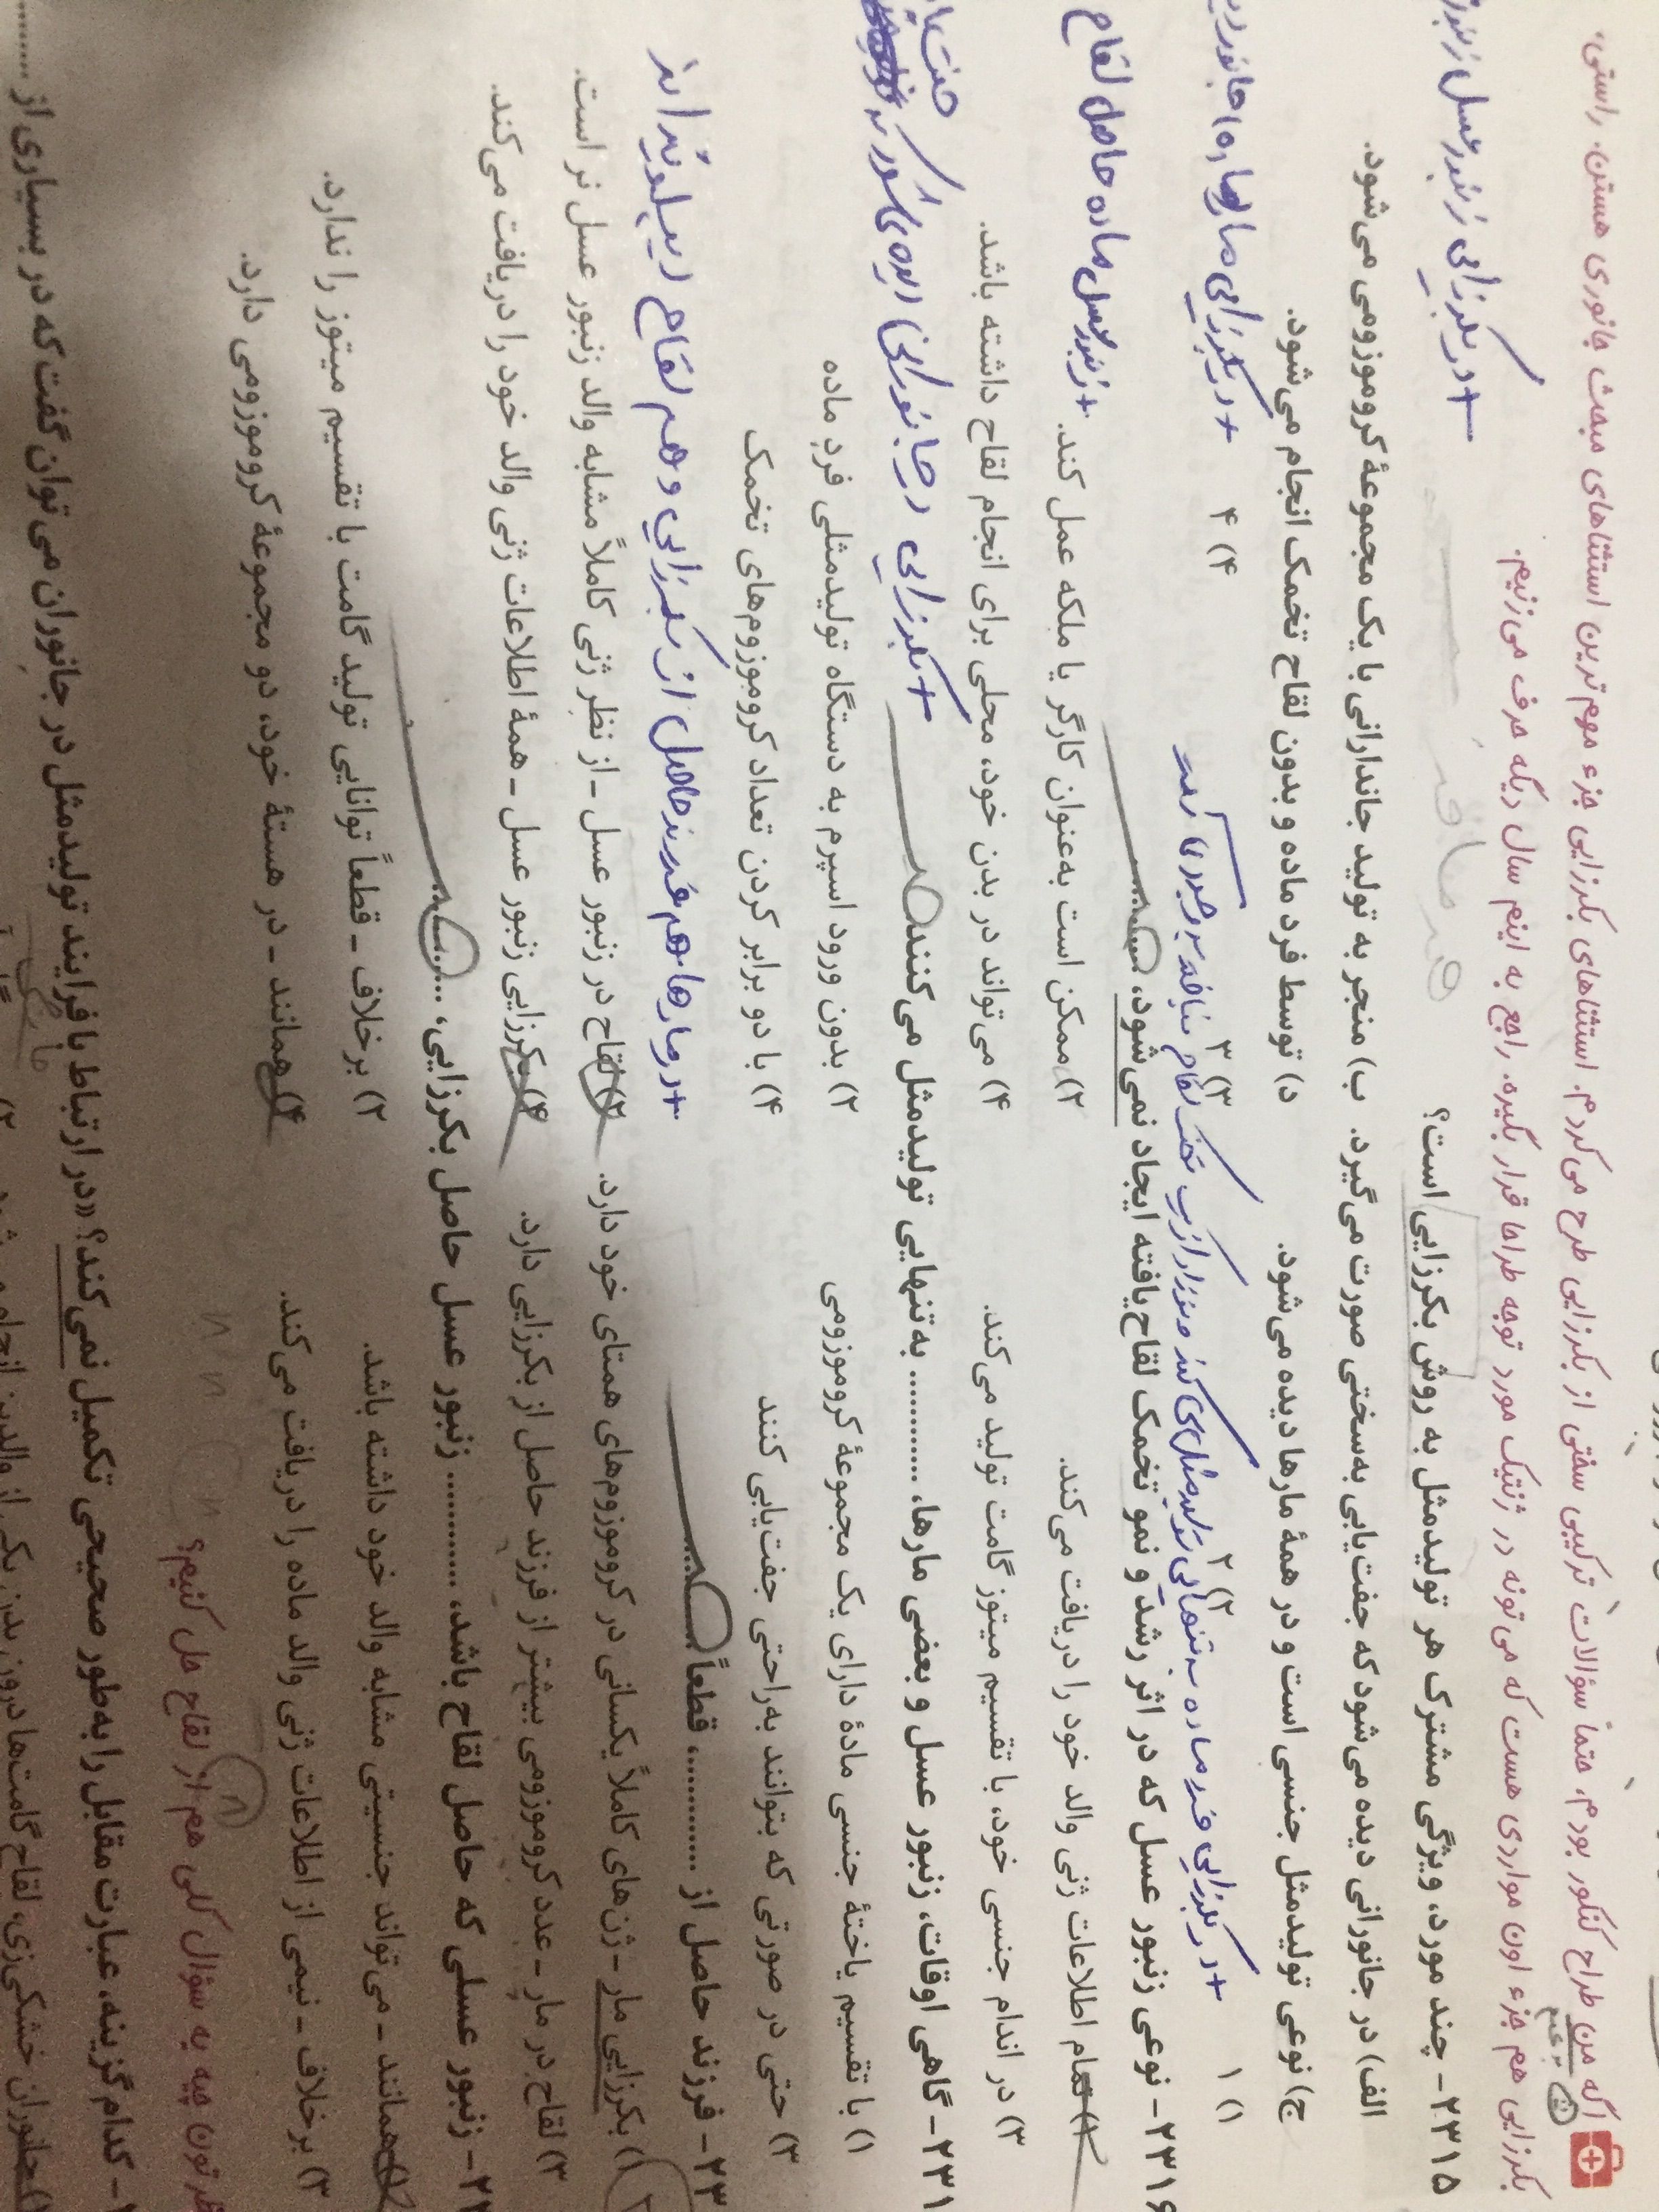 اگه من طراح کنکور بودم، حتماً سؤالات ترکیبی سختی از بکرزایی طرح می‌کردم. استثناهای بکرزایی جزء مهم‌ترین استثناهای مبحث جانوری هستن. راستی،
بکرزایی هم جزء اون مواردی هست که می‌تونه در ژنتیک مورد توجه طراحا قرار بگیره. راجع به اینم سال دیگه حرف می‌زنیم.
۲۳۱۵- چند مورد، ویژگی مشترک هر تولیدمثل به روش بکرزایی است؟
+ در بکرزایی زنبور عسل
الف) در جانورانی دیده می‌شود که جفت‌یابی به‌سختی صورت می‌گیرد. ب) منجر به تولید جاندارانی با یک مجموعهٔ کروموزومی می‌شود.
ج) نوعی تولیدمثل جنسی است و در همهٔ مارها دیده می‌شود. د) توسط فرد ماده و بدون لقاح تخمک انجام می‌شود.
۱) ۱ ۲) ۲ ۳) ۳ ۴) ۴
+ در بکرزایی مارها
+ در بکرزایی فرد ماده به تنهایی تولیدمثل می‌کند
۲۳۱۶- نوعی زنبور عسل که در اثر رشد و نمو تخمک لقاح‌یافته ایجاد نمی‌شود، ..........
+ زنبور عسل ماده حاصل لقاح
۱) تمام اطلاعات ژنی والد خود را دریافت می‌کند. ۲) ممکن است به‌عنوان کارگر یا ملکه عمل کند.
۳) در اندام جنسی خود، با تقسیم میتوز گامت تولید می‌کند. ۴) می‌تواند در بدن خود، محلی برای انجام لقاح داشته باشد.
۲۳۱- گاهی اوقات، زنبور عسل و بعضی مارها، .......... به‌تنهایی تولیدمثل می‌کنند.
+ بکرزایی در جانورانی
۱) با تقسیم یاختهٔ جنسی مادهٔ دارای یک مجموعهٔ کروموزومی ۲) بدون ورود اسپرم به دستگاه تولیدمثلی فردِ ماده
۳) حتی در صورتی که بتوانند به‌راحتی جفت‌یابی کنند ۴) با دو برابر کردن تعداد کروموزوم‌های تخمک
۲۳- فرزند حاصل از .......... قطعاً ..........
+ در مارها هم فرزند حاصل از بکرزایی و هم لقاح دیپلوئیداند
۱) بکرزایی مار - ژن‌های کاملاً یکسانی در کروموزوم‌های همتای خود دارد. ۲) لقاح در زنبور عسل - از نظر ژنی کاملاً مشابه والد زنبور عسل نر است.
۳) لقاح در مار - عدد کروموزومی بیشتر از فرزند حاصل از بکرزایی دارد. ۴) بکرزایی زنبور عسل - همهٔ اطلاعات ژنی والد خود را دریافت می‌کند.
۲۲- زنبور عسلی که حاصل لقاح باشد، .......... زنبور عسل حاصل بکرزایی، ..........
۱) همانند - می‌تواند جنسیتی مشابه والد خود داشته باشد. ۲) برخلاف - قطعاً توانایی تولید گامت با تقسیم میتوز را ندارد.
۳) برخلاف - نیمی از اطلاعات ژنی والد ماده را دریافت می‌کند. ۴) همانند - در هستهٔ خود، دو مجموعهٔ کروموزومی دارد.
نظرتون چیه یه سؤال کلی هم از لقاح حل کنیم؟
- کدام گزینه، عبارت مقابل را به‌طور صحیحی تکمیل نمی‌کند؟ «در ارتباط با فرایند تولیدمثل در جانوران می‌توان گفت که در بسیاری از ........